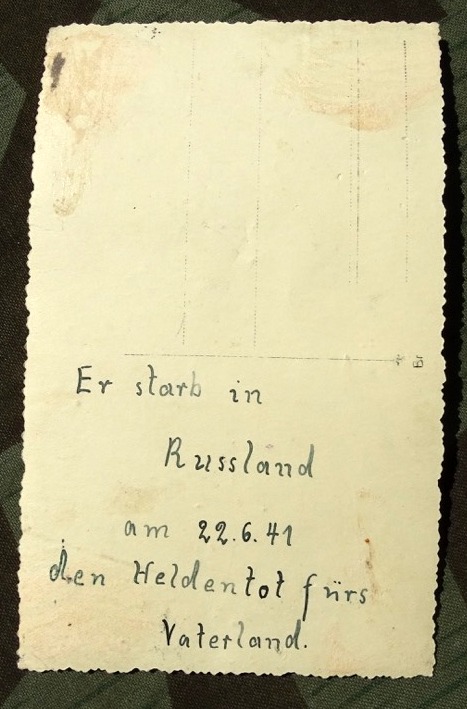 Er starb in
Russland
am 22.6.41
den Heldentot fürs
Vaterland.